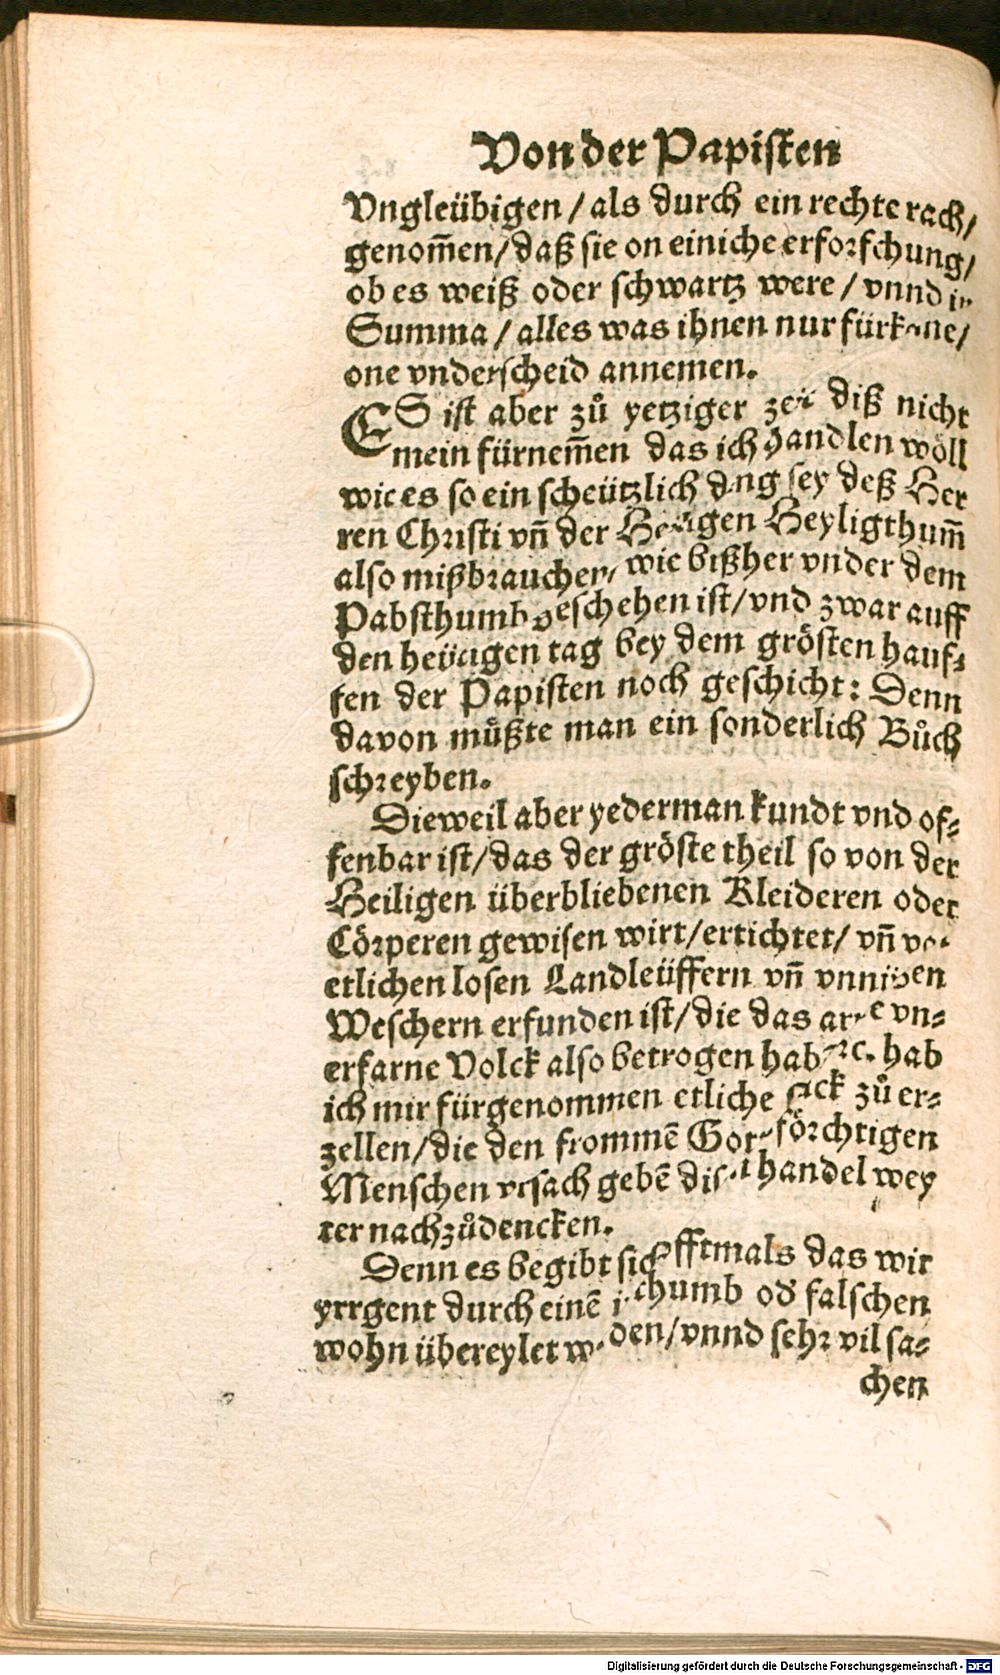 Von der Papisten
Vngleübigen / als durch ein rechte rach /
genom̃en / daß sie on einiche erforschung /
ob es weiß oder schwartz were / vnnd in
Summa / alles was ihnen nur fürkame /
one vnderscheid annemen.
ES ist aber zů yetziger zeit diß nicht
mein fürnem̃en das ich handlen wöll
wie es so ein scheützlich ding sey deß Her
ren Christi vñ der Heiligen Heyligthum̃
also mißbrauchen / wie bißher vnder dem
Pabsthumb geschehen ist / vnd zwar auff
den heütigen tag bey dem grösten hauf⸗
fen der Papisten noch geschicht: Denn
davon můßte man ein sonderlich Bůch
schreyben.
Dieweil aber yederman kundt vnd of⸗
fenbar ist / das der gröste theil so von der
Heiligen überbliebenen Kleideren oder
Cörperen gewisen wirt / ertichtet / vñ von
etlichen losen Landleüffern vñ vnnützen
Weschern erfunden ist / die das arme vn⸗
erfarne Volck also betrogen haben. hab
ich mir fürgenommen etliche stuck zů er⸗
zellen / die den frommē Gottsförchtigen
Menschen vrsach gebē disen handel wey
ter nachzůdencken.
Denn es begibt sich offtmals das wir
yrrgent durch einē irthumb od̕ falschen
wohn übereylet werden / vnnd sehr vil sa⸗
chen
Digitalisierung gefördert durch die Deutsche Forschungsgemeinschaft - DFG